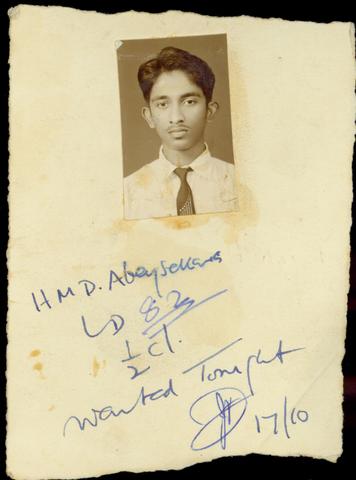 H M D. Abeysekara
LD 82
1/2 ct.
Wanted Tonight
17/10